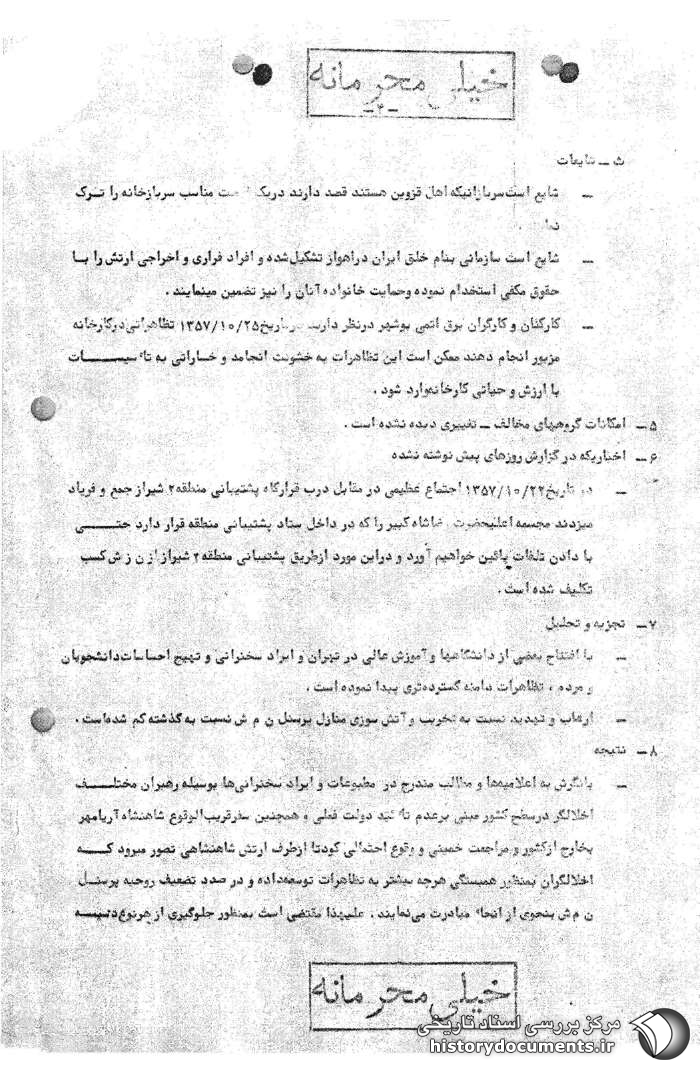 خیلی محرمانه
-۳-
ث ــ شایعات
ــ شایع است سربازانیکه اهل قزوین هستند قصد دارند دریک مناسب سربازخانه را ترک
ــ شایع است سازمانی بنام خلق ایران دراهواز تشکیل شده و افراد فراری و اخراجی ارتش را با
حقوق مکفی استخدام نموده وحمایت خانواده آنان را نیز تضمین مینمایند .
ــ کارکنان و کارگران برق اتمی بوشهر درنظر دارند درتاریخ ۱۳۵۷/۱۰/۲۵ تظاهراتی درکارخانه
مزبور انجام دهند ممکن است این تظاهرات به خشونت انجامد و خساراتی به تاٴسیسات
با ارزش و حیاتی کارخانه وارد شود .
۵ــ امکانات گروههای مخالف ــ تغییری دیده نشده است .
۶ــ اخباریکه در گزارش روزهای پیش نوشته نشده
ــ در تاریخ ۱۳۵۷/۱۰/۲۲ اجتماع عظیمی در مقابل درب قرارگاه پشتیبانی منطقه ۲ شیراز جمع و فریاد
میزدند مجسمه اعلیحضرت رضاشاه کبیر را که در داخل ستاد پشتیبانی منطقه قرار دارد حتی
با دادن تلفات پائین خواهیم آورد و دراین مورد ازطریق پشتیبانی منطقه ۲ شیراز از ن ز ش کسب
تکلیف شده است .
۷ــ تجزیه و تحلیل
ــ با افتتاح بعضی از دانشگاهها و آموزش عالی در تهران و ایراد سخنرانی و تهییج احساسات دانشجویان
و مردم ، تظاهرات دامنه گسترده‌تری پیدا نموده است .
ــ ارعاب و تهدید نسبت به تخریب و آتش سوزی منازل پرسنل ن م ش نسبت به گذشته کم شده‌است .
۸ــ نتیجه
ــ بانگرش به اعلامیه‌ها و مطالب مندرج در مطبوعات و ایراد سخنرانی‌ها بوسیله رهبران مختلف
اخلالگر درسطح کشور مبنی برعدم تاٴئید دولت فعلی و همچنین سفرقریب الوقوع شاهنشاه آریامهر
بخارج ازکشور و مراجعت خمینی و وقوع احتمالی کودتا ازطرف ارتش شاهنشاهی تصور میرود که
اخلالگران بمنظور همبستگی هرچه بیشتر به تظاهرات توسعه داده و در صدد تضعیف روحیه پرسنل
ن م ش بنحوی از انحاء مبادرت می‌نمایند . علیهذا مقتضی است بمنظور جلوگیری از هرنوع دسیسه
خیلی محرمانه
مرکز بررسی اسناد تاریخی
historydocuments.ir